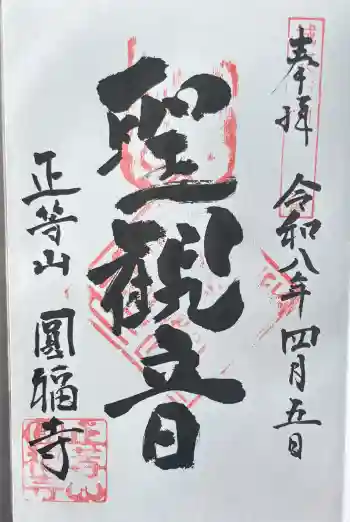 奉拝
令和八年四月五日
聖観音
正等山
圓福寺